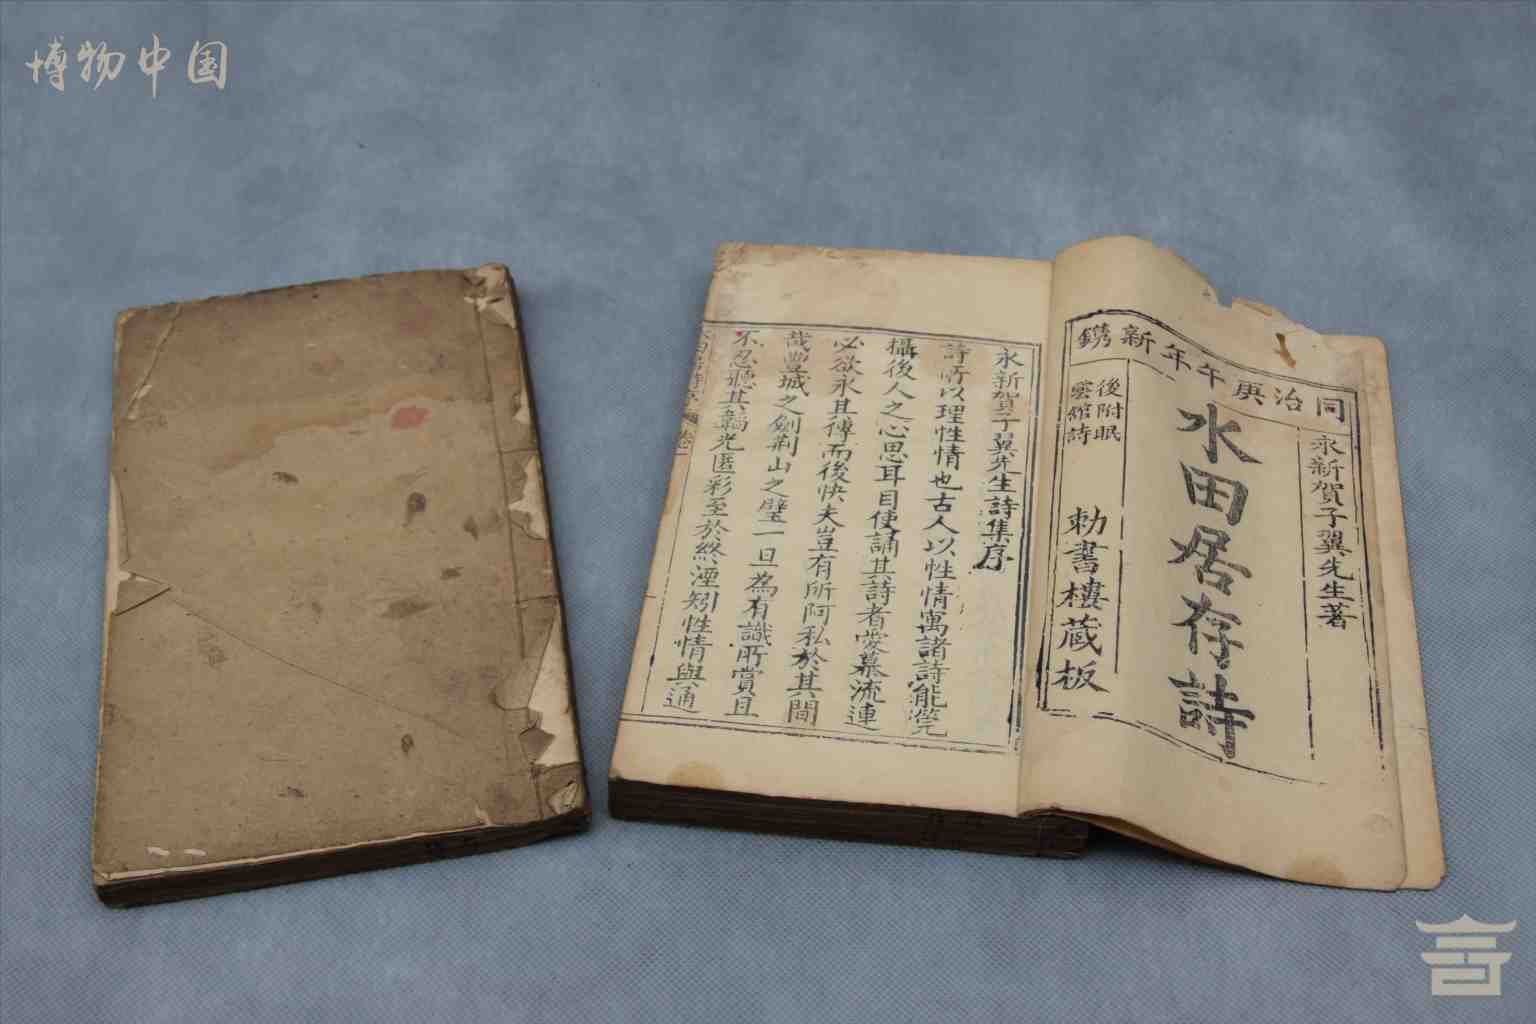 博物中国
同治庚午年新鐫
永新賀子翼先生著
水田居存詩
後附眠
雲館詩
勅書樓蔵板
永新賀子翼先生詩集序
詩所以理性情也古人以性情寓諸詩能學
攝後人之心思耳目使誦其詩者愛慕流連
必欲永其傳而後快夫豈有所阿私於其間
哉豐城之劍荆山之璧一旦為有識所賞且
不忍聽其韜光匿彩至於終湮矧性情與通